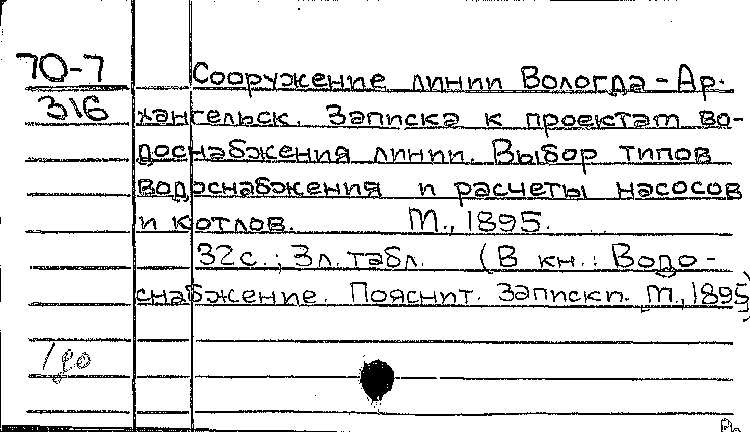 70-7 Сооружение линии Вологда-Ар-
316 хангельск. Записка к проектам во-
доснабжения линии. Выбор типов
водоснабжения и расчеты насосов
и котлов. М., 1895.
32с.; 3л. табл. (В кн.: Водо-
снабжение. Пояснит. записки. М., 1895)